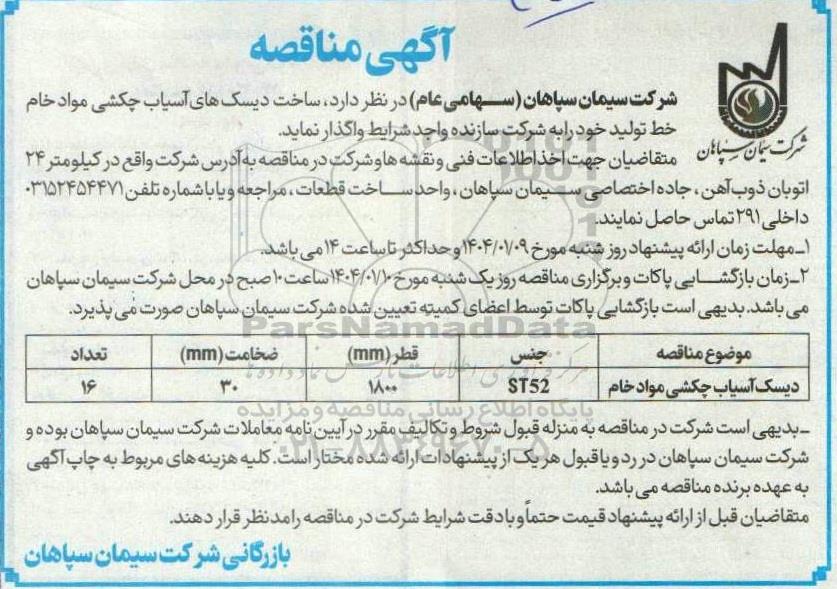 آگهی مناقصه
شرکت سیمان سپاهان
شرکت سیمان سپاهان (سهامی عام) در نظر دارد، ساخت دیسک های آسیاب چکشی مواد خام
خط تولید خود را به شرکت سازنده واجد شرایط واگذار نماید.
متقاضیان جهت اخذ اطلاعات فنی و نقشه ها و شرکت در مناقصه به آدرس شرکت واقع در کیلومتر ۲۴
اتوبان ذوب آهن، جاده اختصاصی سیمان سپاهان، واحد ساخت قطعات، مراجعه و یا با شماره تلفن ۰۳۱۵۲۴۵۴۴۷۱
داخلی ۲۹۱ تماس حاصل نمایند.
۱ـ مهلت زمان ارائه پیشنهاد روز شنبه مورخ ۱۴۰۴/۰۱/۰۹ و حداکثر تا ساعت ۱۴ می باشد.
۲ـ زمان بازگشایی پاکات و برگزاری مناقصه روز یک شنبه مورخ ۱۴۰۴/۰۱/۱۰ ساعت ۱۰ صبح در محل شرکت سیمان سپاهان
می باشد. بدیهی است بازگشایی پاکات توسط اعضای کمیته تعیین شده شرکت سیمان سپاهان صورت می پذیرد.
ParsNamadData
موضوع مناقصه جنس قطر (mm) ضخامت (mm) تعداد
دیسک آسیاب چکشی مواد خام ST52 ۱۸۰۰ ۳۰ ۱۶
پایگاه اطلاع رسانی مناقصه و مزایده
ـ بدیهی است شرکت در مناقصه به منزله قبول شروط و تکالیف مقرر در آیین نامه معاملات شرکت سیمان سپاهان بوده و
شرکت سیمان سپاهان در رد و یا قبول هر یک از پیشنهادات ارائه شده مختار است. کلیه هزینه های مربوط به چاپ آگهی
به عهده برنده مناقصه می باشد.
متقاضیان قبل از ارائه پیشنهاد قیمت حتماً و با دقت شرایط شرکت در مناقصه را مدنظر قرار دهند.
بازرگانی شرکت سیمان سپاهان